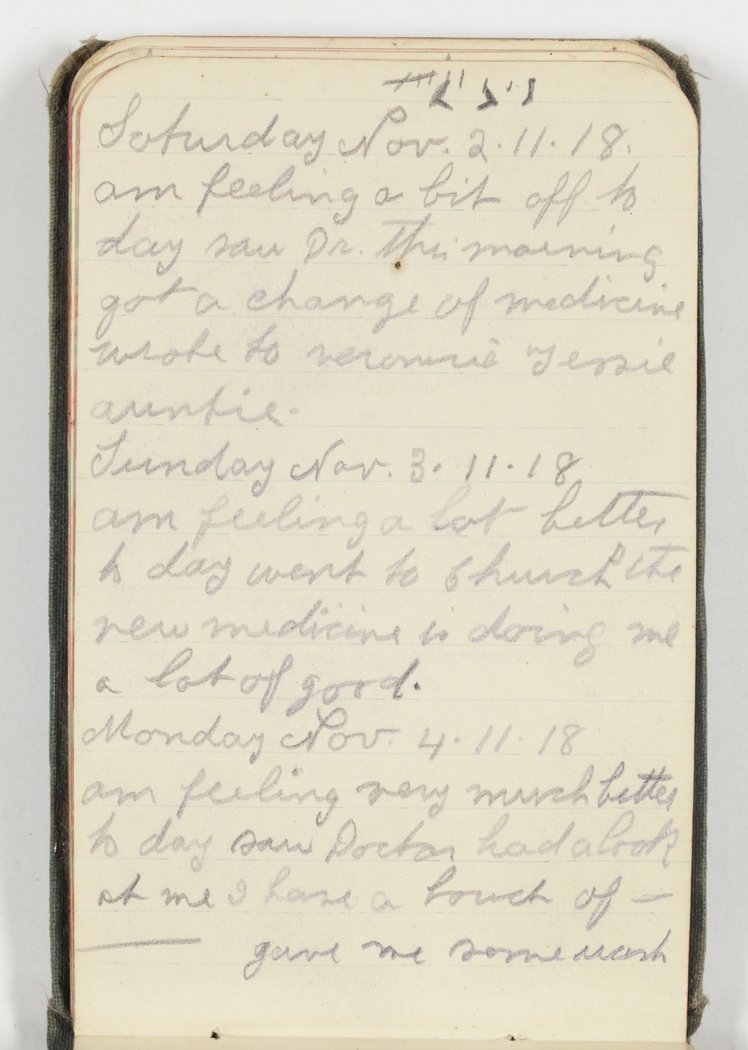 Saturday Nov. 2.11.18.
am feeling a bit off to
day saw Dr. this morning
got a change of medicine
wrote to veronnie Jessie
auntie.
Sunday Nov. 3.11.18
am feeling a lot better
to day went to Church the
new medicine is doing me
a lot of good.
Monday Nov. 4.11.18
am feeling very much better
to day saw Doctor had a look
at me I have a touch of —
— gave me some wash